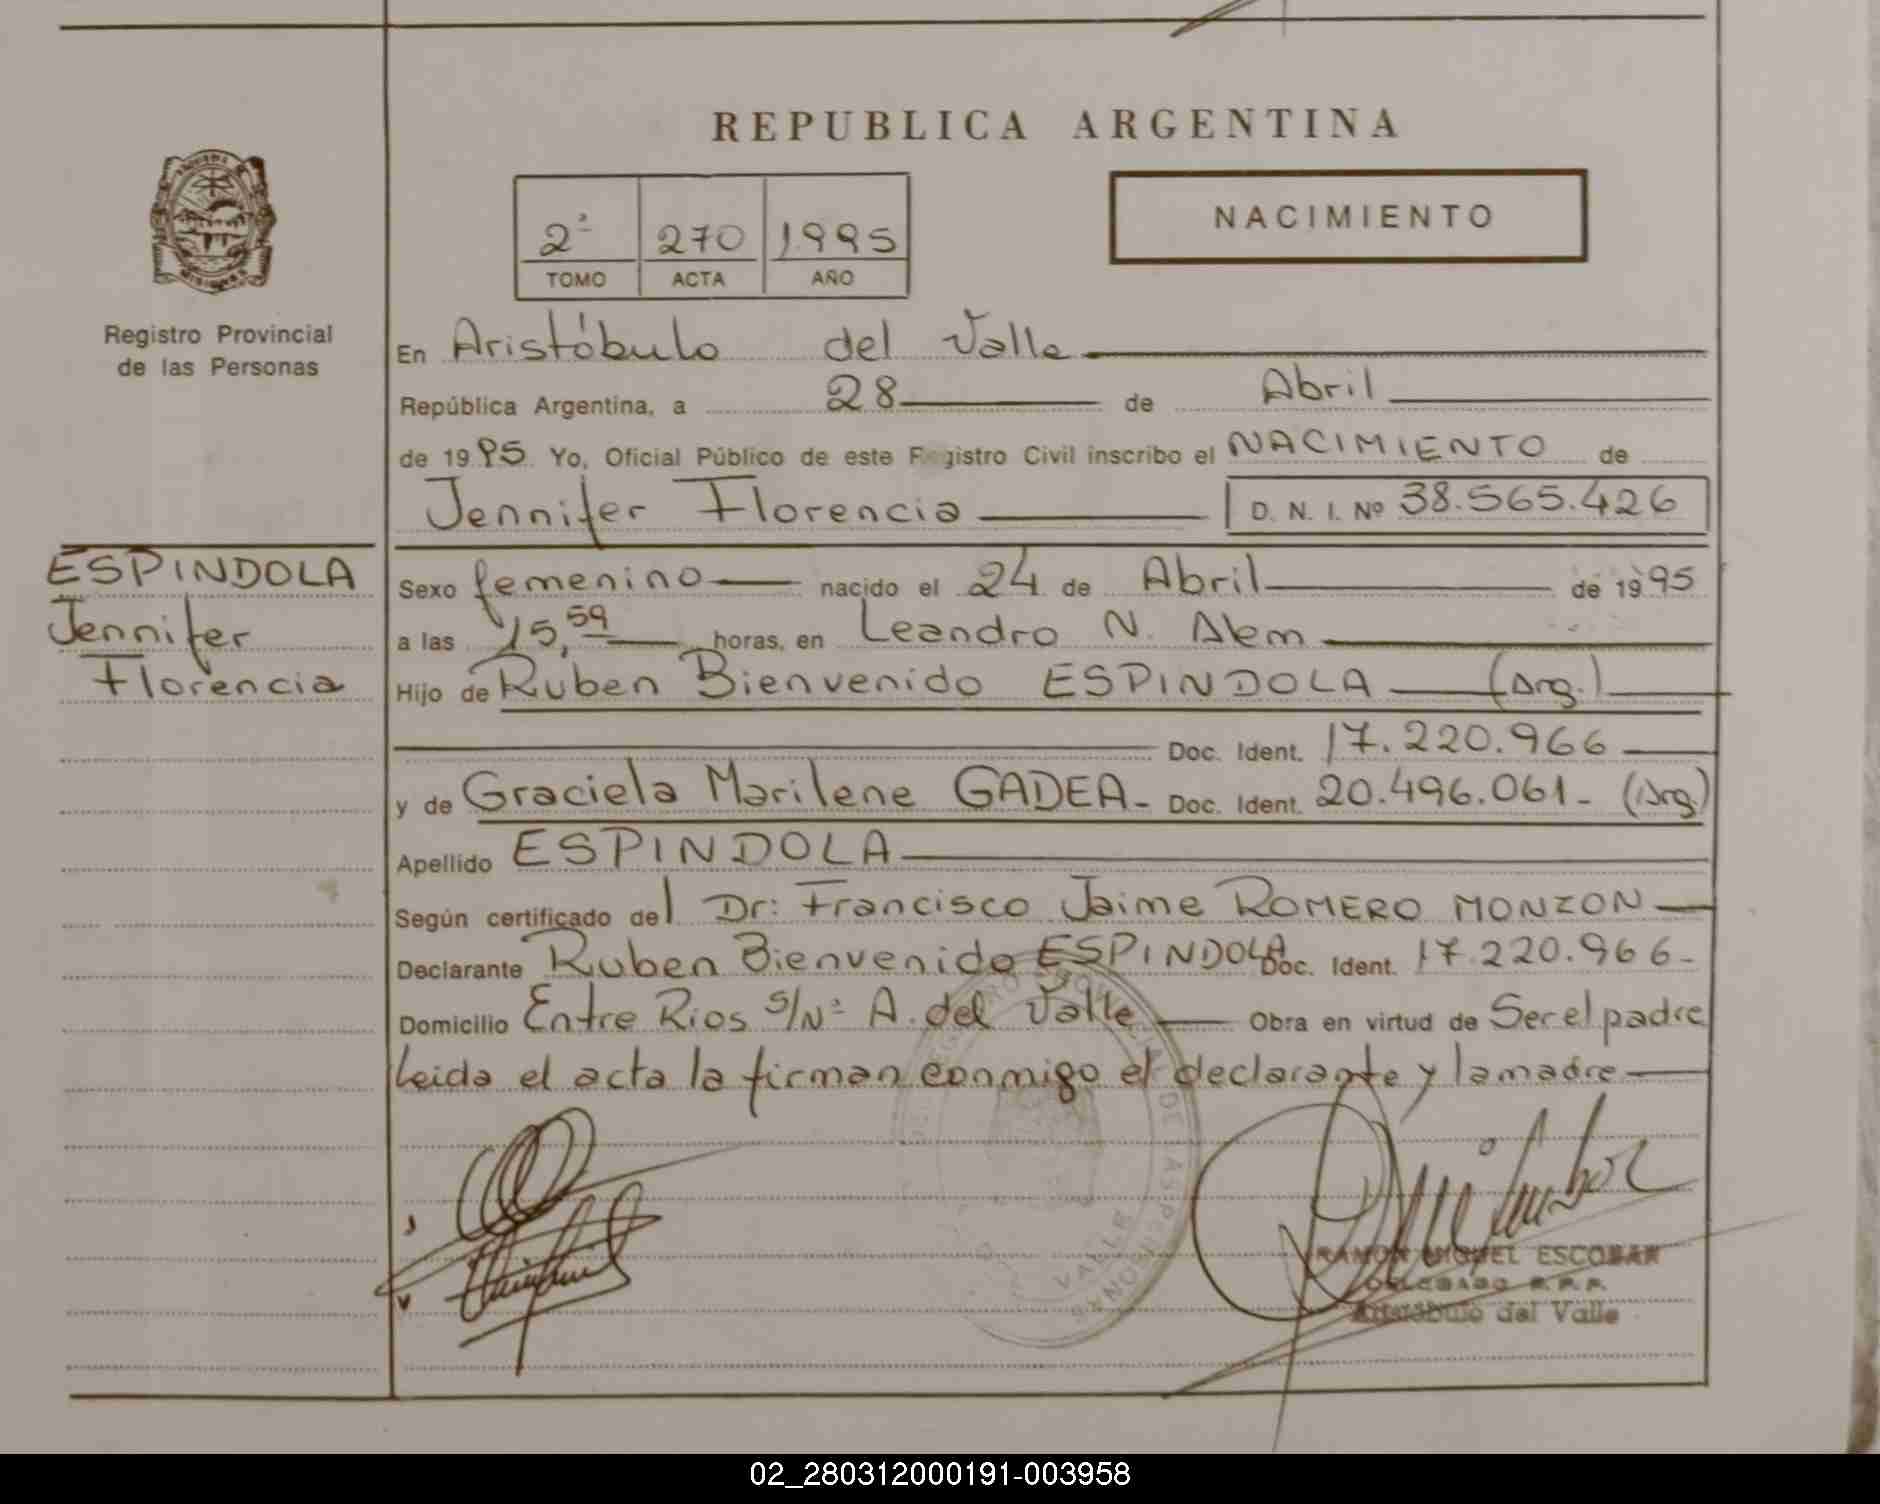 REPUBLICA ARGENTINA
2ª 270 1995
TOMO ACTA AÑO
NACIMIENTO
Registro Provincial
de las Personas
En Aristóbulo del Valle
República Argentina, a 28 de Abril
de 1995 Yo, Oficial Público de este Registro Civil inscribo el NACIMIENTO de
Jennifer Florencia D. N. I. Nº 38.565.426
ESPINDOLA
Jennifer
Florencia
Sexo femenino nacido el 24 de Abril de 1995
a las 15,59 horas, en Leandro N. Alem
Hijo de Ruben Bienvenido ESPINDOLA (Arg.)
Doc. Ident. 17.220.966
y de Graciela Marilene GADEA - Doc. Ident. 20.496.061 - (Arg)
Apellido ESPINDOLA
Según certificado del Dr: Francisco Jaime ROMERO MONZON
Declarante Ruben Bienvenido ESPINDOLA Doc. Ident. 17.220.966-
Domicilio Entre Rios S/Nº A. del Valle Obra en virtud de Ser el padre
Leida el acta la firman conmigo el declarante y la madre
RAMON MIGUEL ESCOBAR
DELEGADO R.P.P.
Aristóbulo del Valle
02_280312000191-003958